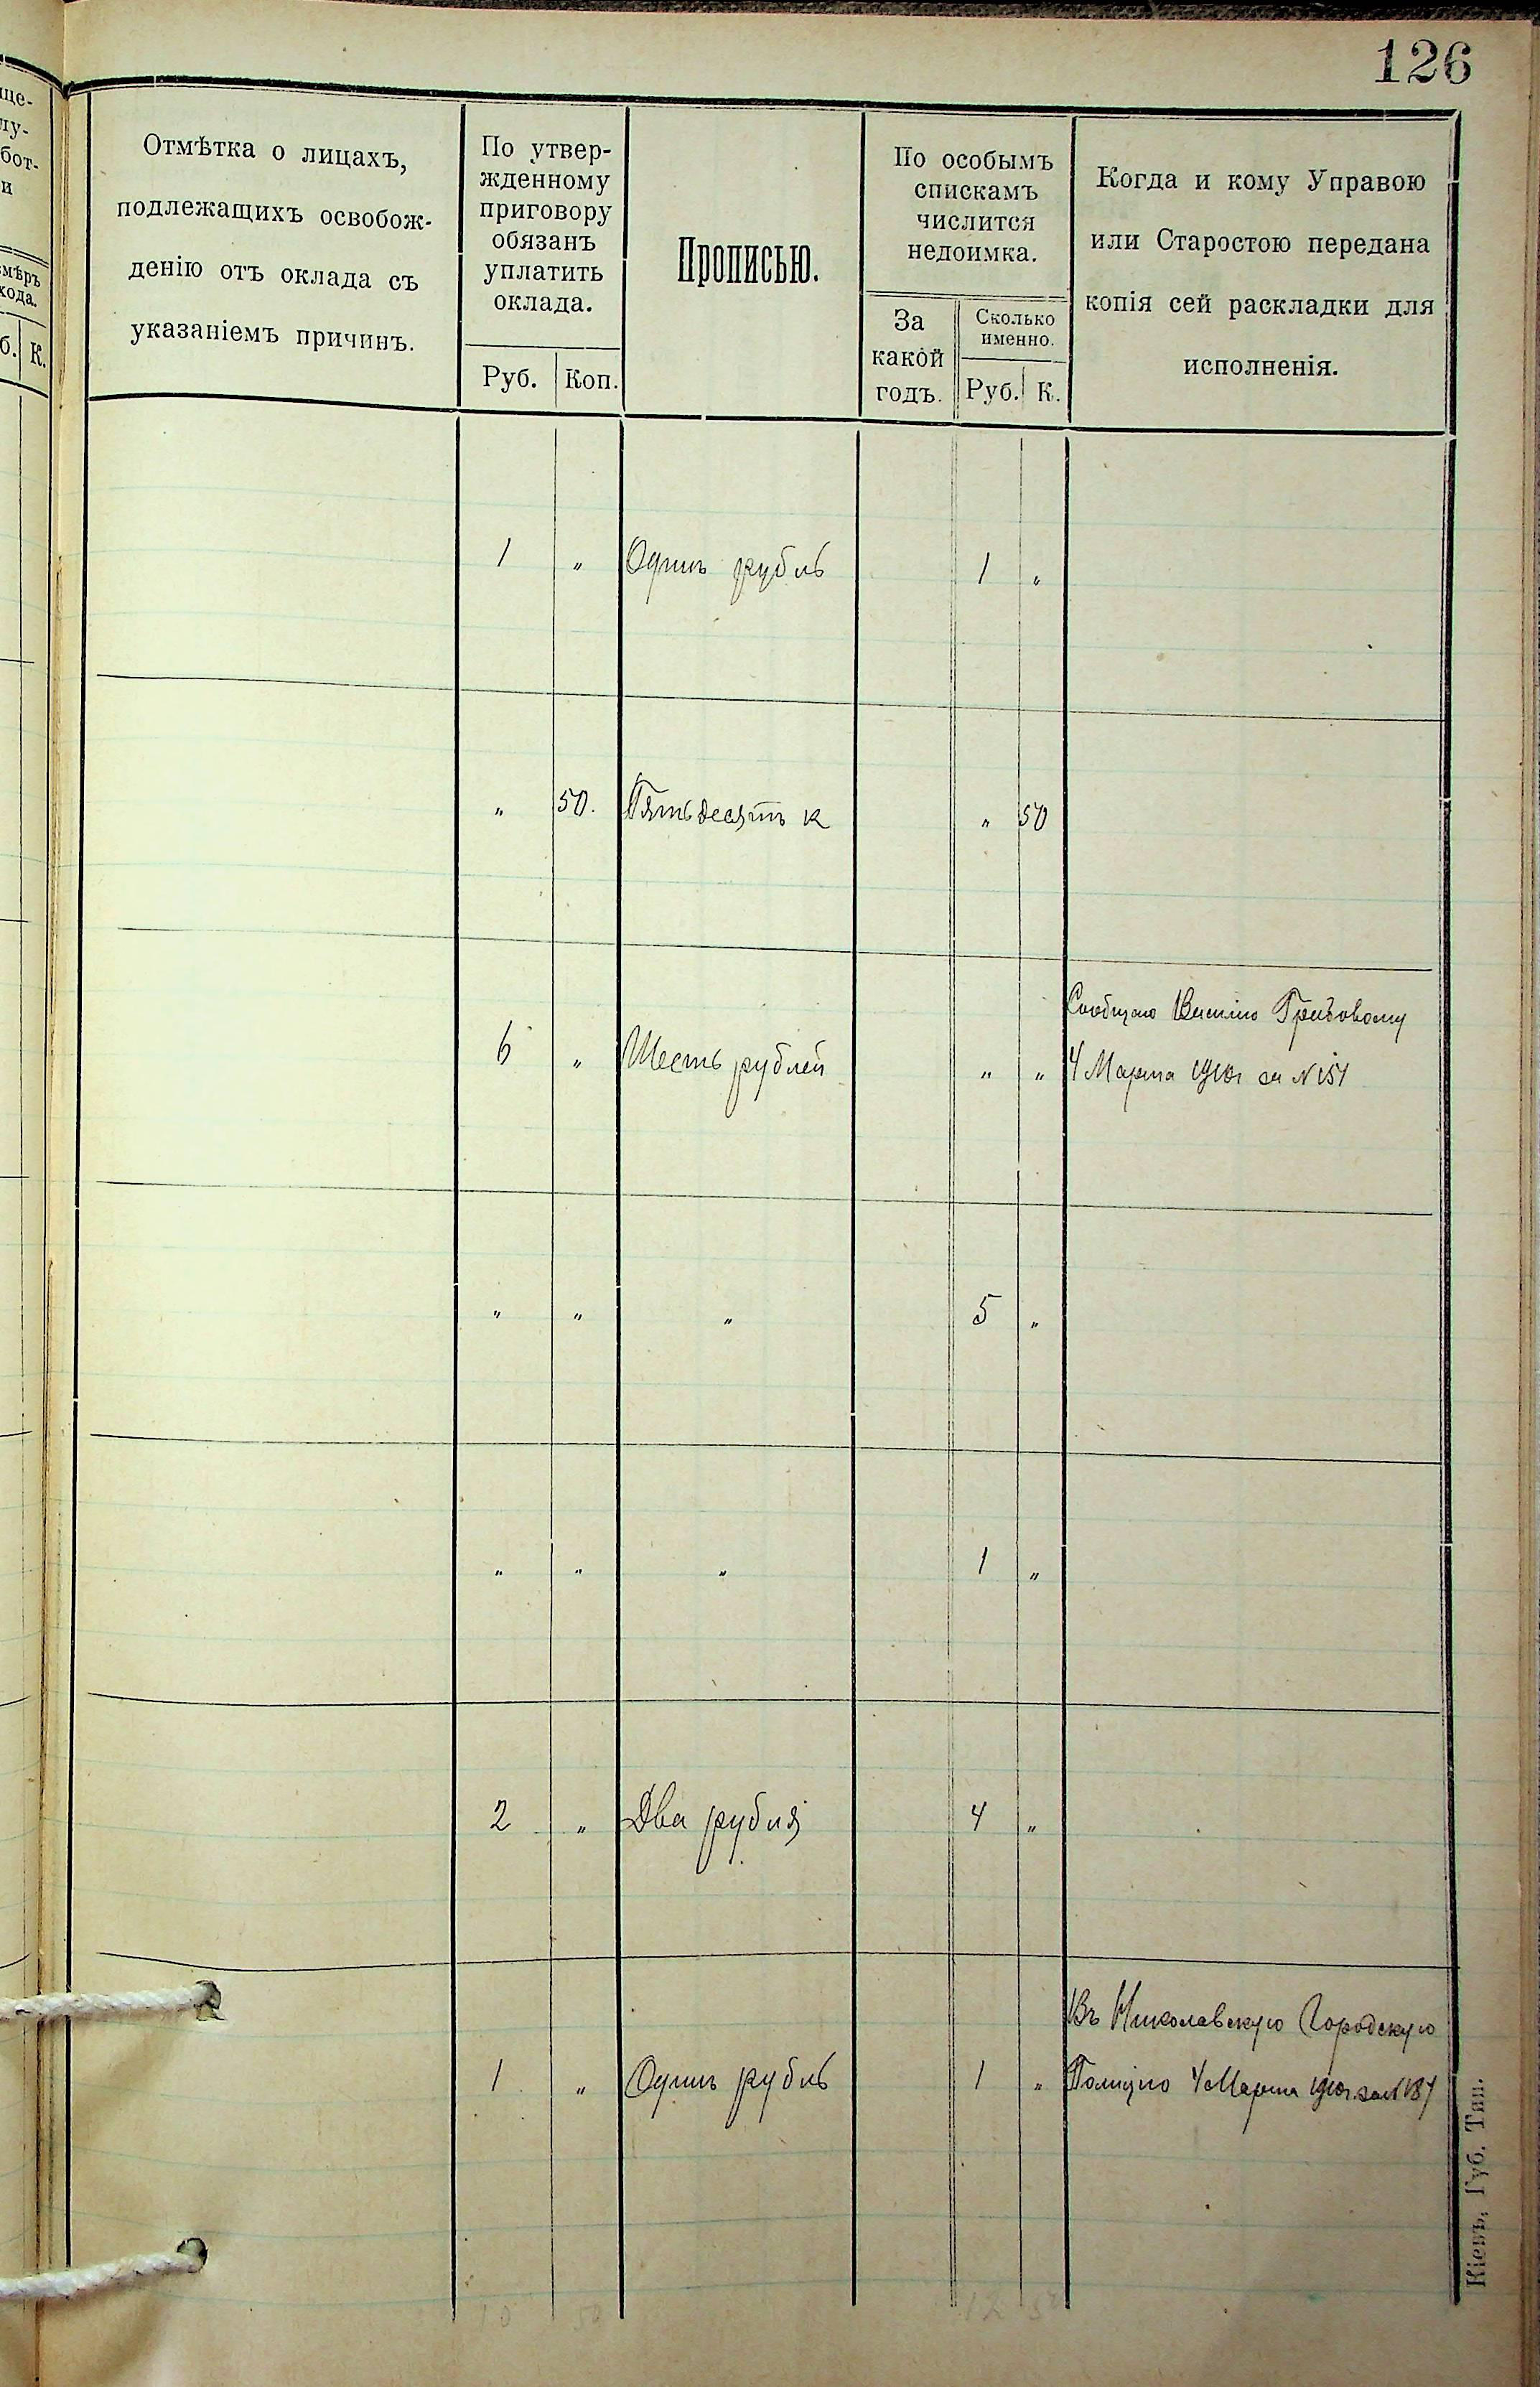 126
ще-
лу-
бот-
и
мѣръ
хода.
б. К.
Отмѣтка о лицахъ,
подлежащихъ освобож-
денію отъ оклада съ
указаніемъ причинъ.
По утвер-
жденному
приговору
обязанъ
уплатить
оклада.
Руб. Коп.
Прописью.
По особымъ
спискамъ
числится
недоимка.
За
какой
годъ.
Сколько
именно.
Руб. К.
Когда и кому Управою
или Старостою передана
копія сей раскладки для
исполненія.
1 " Одинъ рубль 1 "
" 50. Пятьдесятъ к " 50
Василію
6 " Шесть рублей " " 4 Марта 1910г за N 151
" " " 5 "
" " " 1 "
2 " Два рубля 4 "
Въ Николавскую Городскую
1 " Одинъ рубль 1 " Полицію 4 Марта 1910г. за N 187
10 50 12 50
Кіевъ, Губ. Тип.